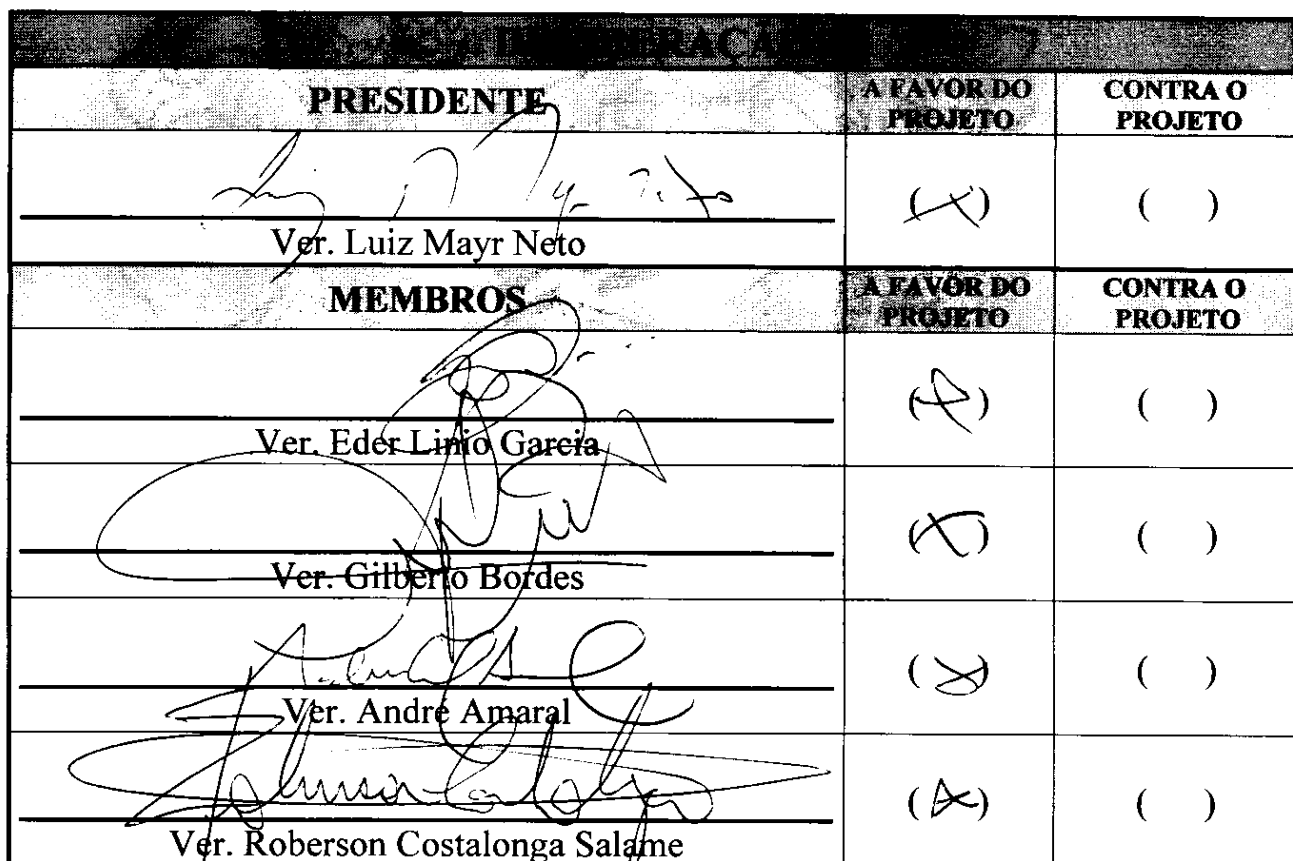 DELIBERAÇÃO
PRESIDENTE
A FAVOR DO PROJETO
CONTRA O PROJETO
(X)
( )
Ver. Luiz Mayr Neto
MEMBROS
A FAVOR DO PROJETO
CONTRA O PROJETO
(X)
( )
Ver. Eder Linio Garcia
(X)
( )
Ver. Gilberto Bordes
(X)
( )
Ver. André Amaral
(X)
( )
Ver. Roberson Costalonga Salame